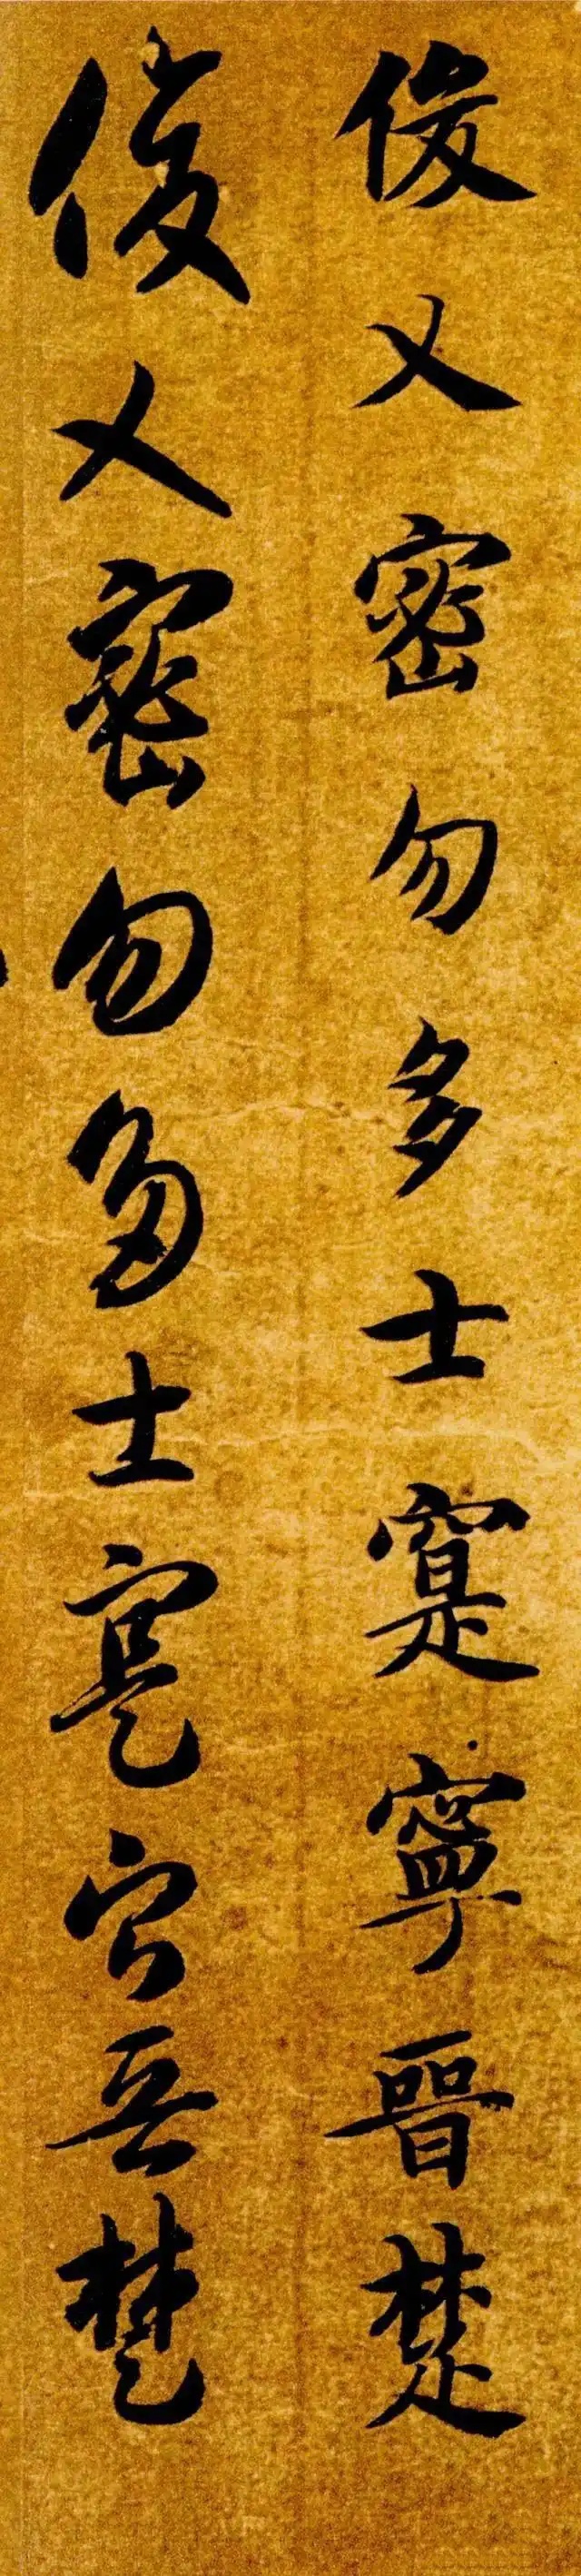 俊乂密勿多士寔寧晉楚
俊乂密勿多士寔寧晉楚